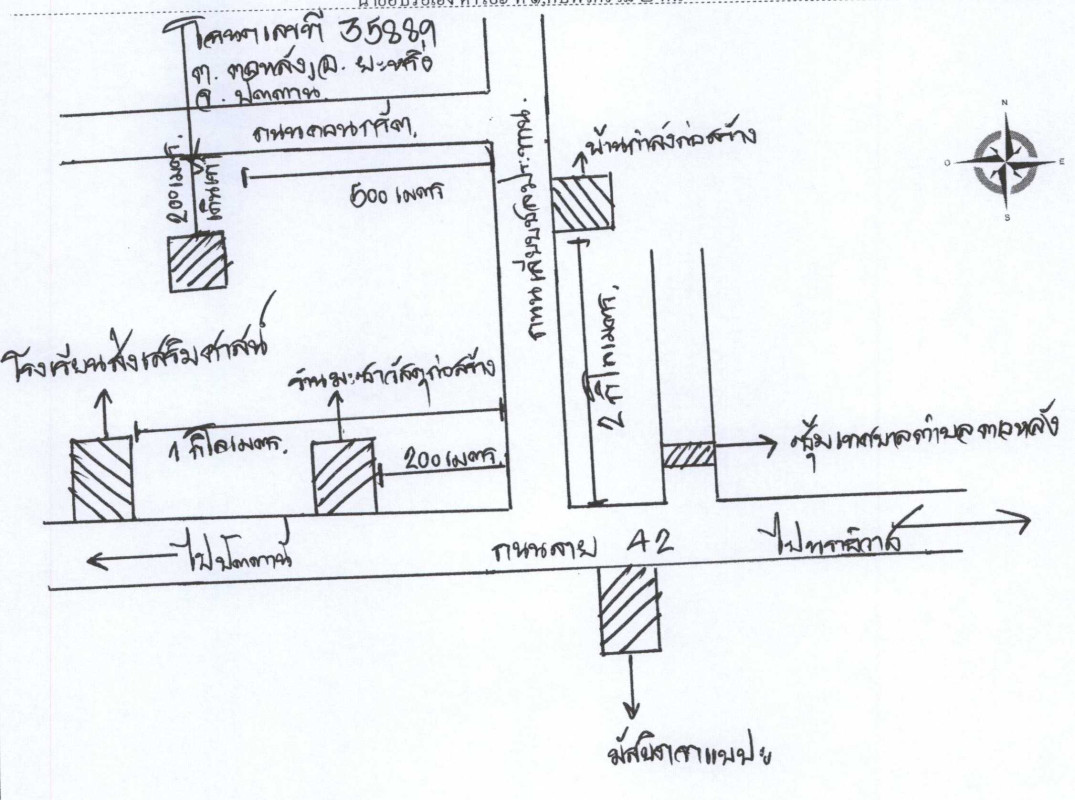 โฉนดเลขที่ 35889
ต. ตาลหลัง, อ. ยะหริ่ง
จ. ปัตตานี
200 เมตร.
500 เมตร
บ้านกำลังก่อสร้าง
N
E
S
O
2 กิโลเมตร.
โรงเรียนส่งเสริมศาสน์
ร้านมะซาวัสดุก่อสร้าง
1 กิโลเมตร.
200 เมตร.
ซุ้มเทศบาลตำบลตาลหลัง
ไปปัตตานี
ถนนสาย 42
ไปนราธิวาส